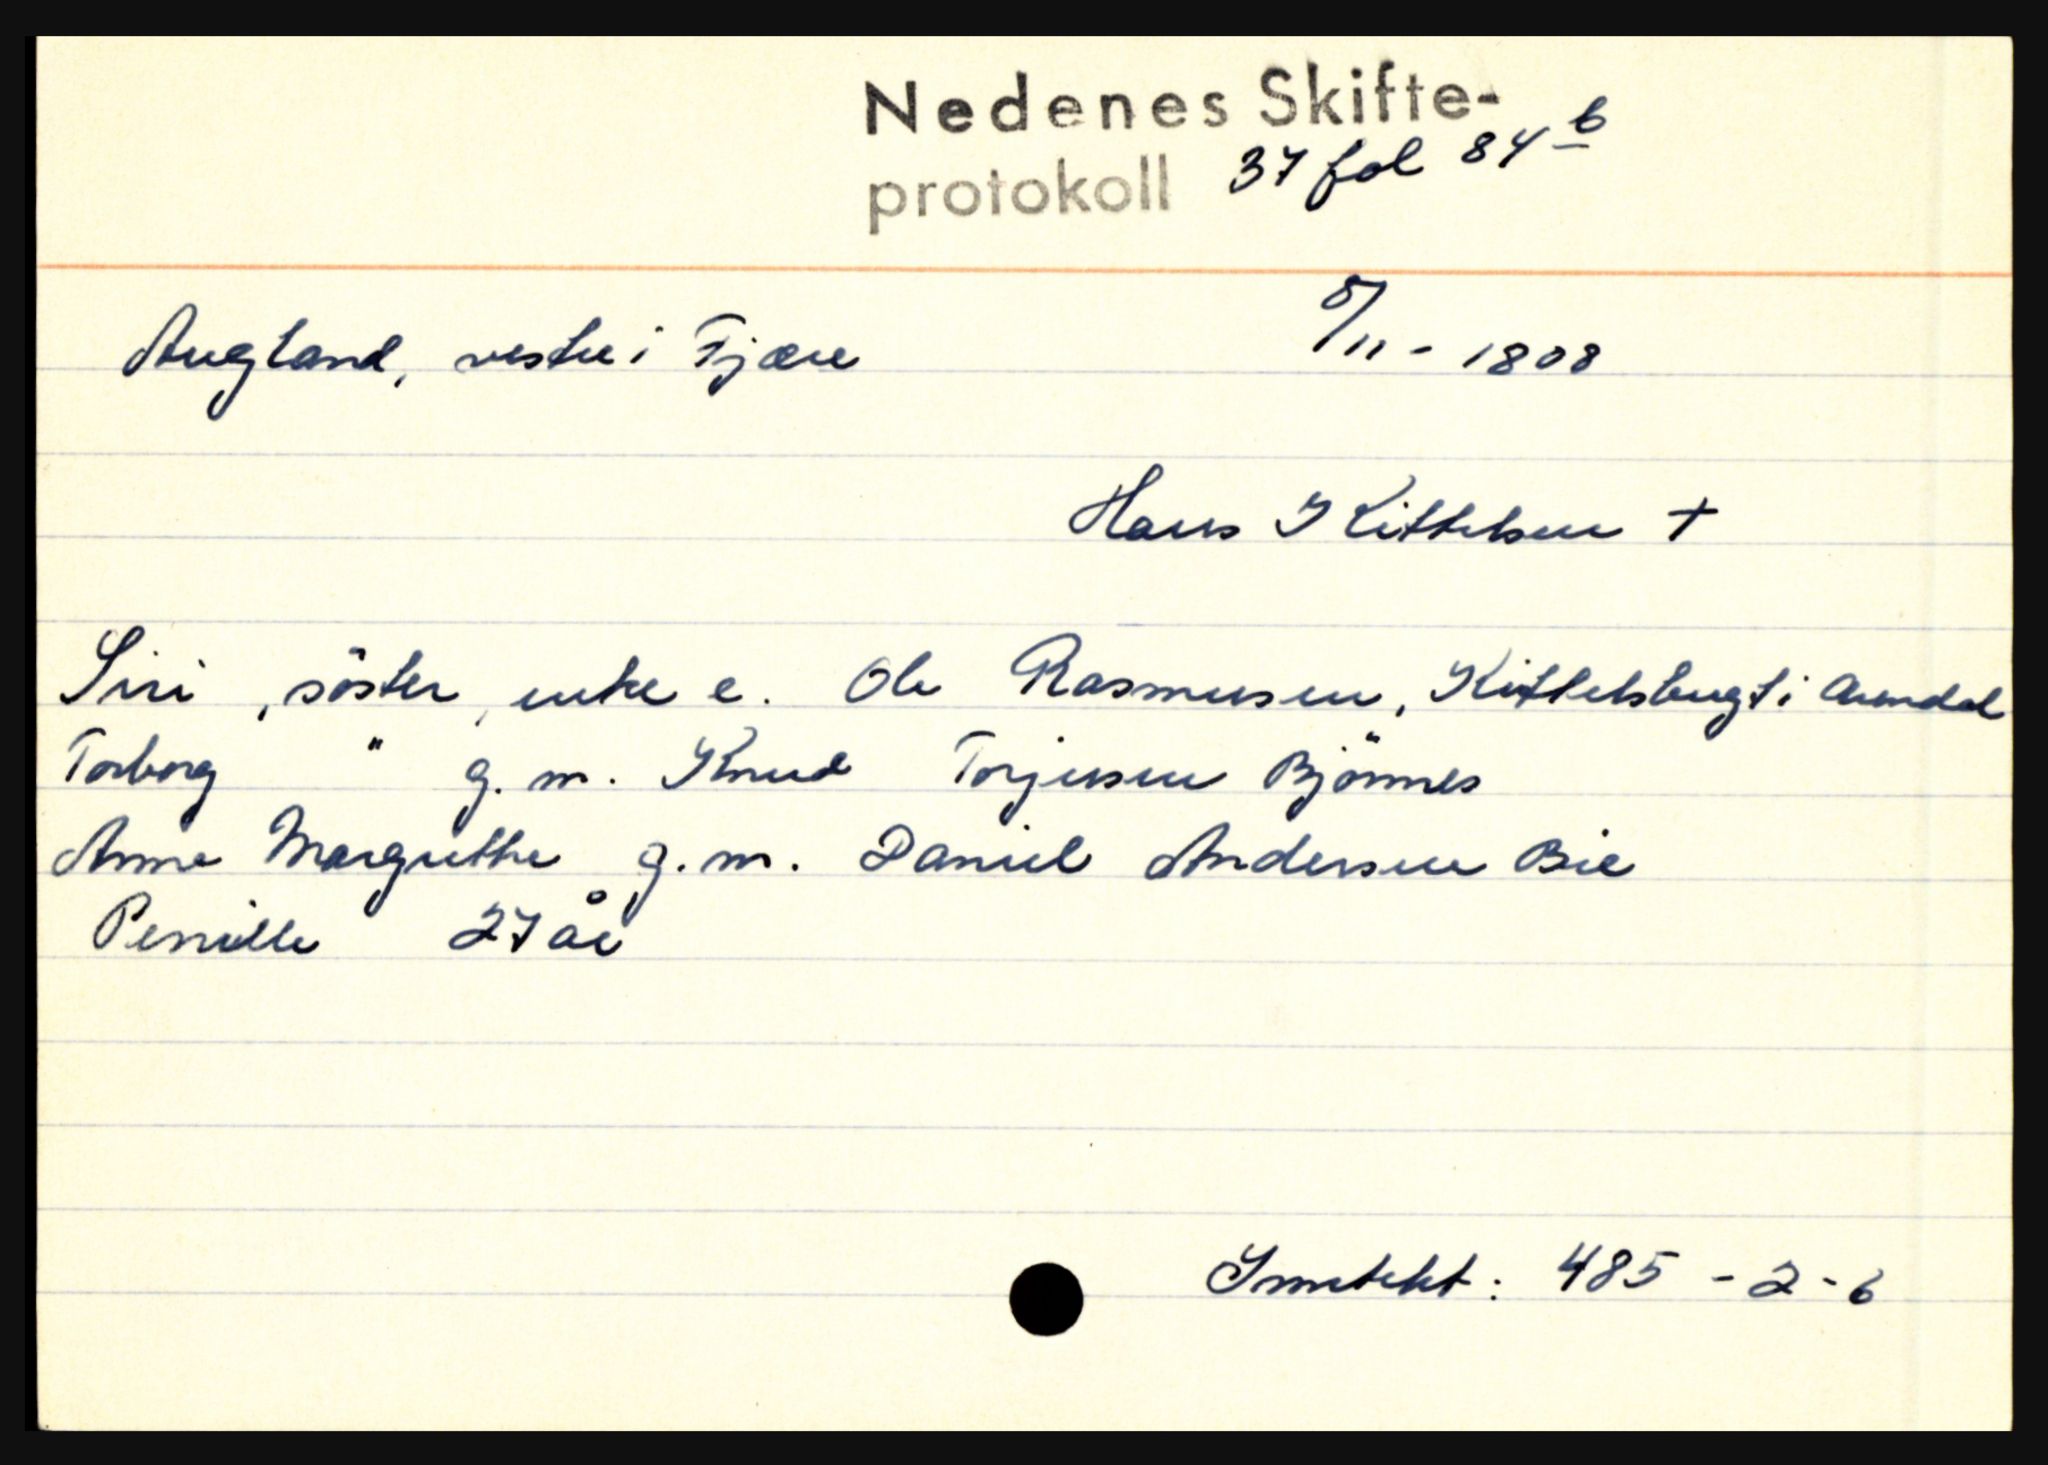 Nedenes Skifte-
protokoll 37 fol 84 b
Augland, vestre i Fjære 5/11 - 1808
Hans Kittelsen +
Siri , söster , enke e. Ole Rasmusen, Kittelsbugt i Arendal
Torborg " g. m. Knud Torjusen Bjönnes
Anne Margrethe g. m. Daniel Andersen Bie
Pernille 27 år
Inntekt: 485 - 2 - 6